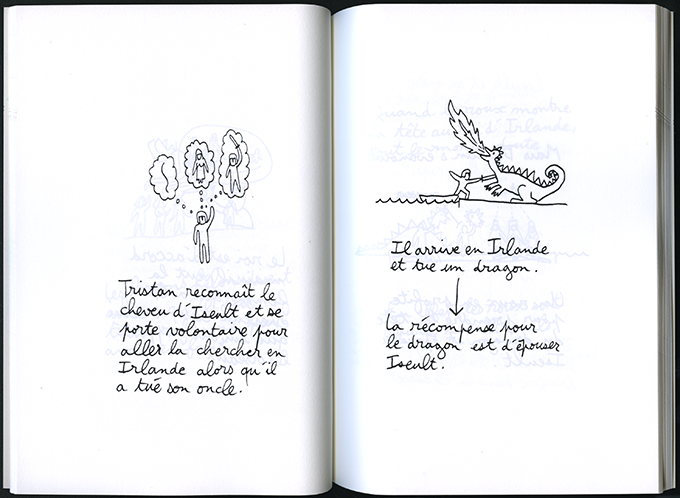 Tristan reconnaît le
cheveu d'Iseult et se
porte volontaire pour
aller la chercher en
Irlande alors qu'il
a tué son oncle.
Il arrive en Irlande
et tue un dragon.
La récompense pour
le dragon est d'épouser
Iseult.